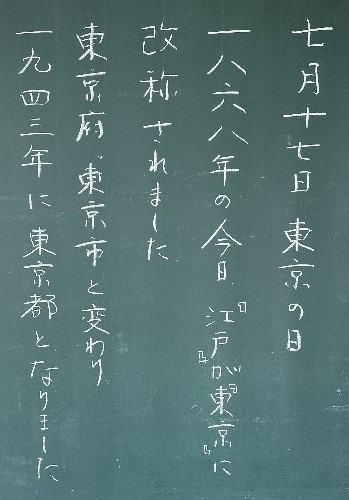 七月十七日 東京の日
一八六八年の今日『江戸』が『東京』に
改称されました
東京府、東京市と変わり
一九四三年に東京都となりました